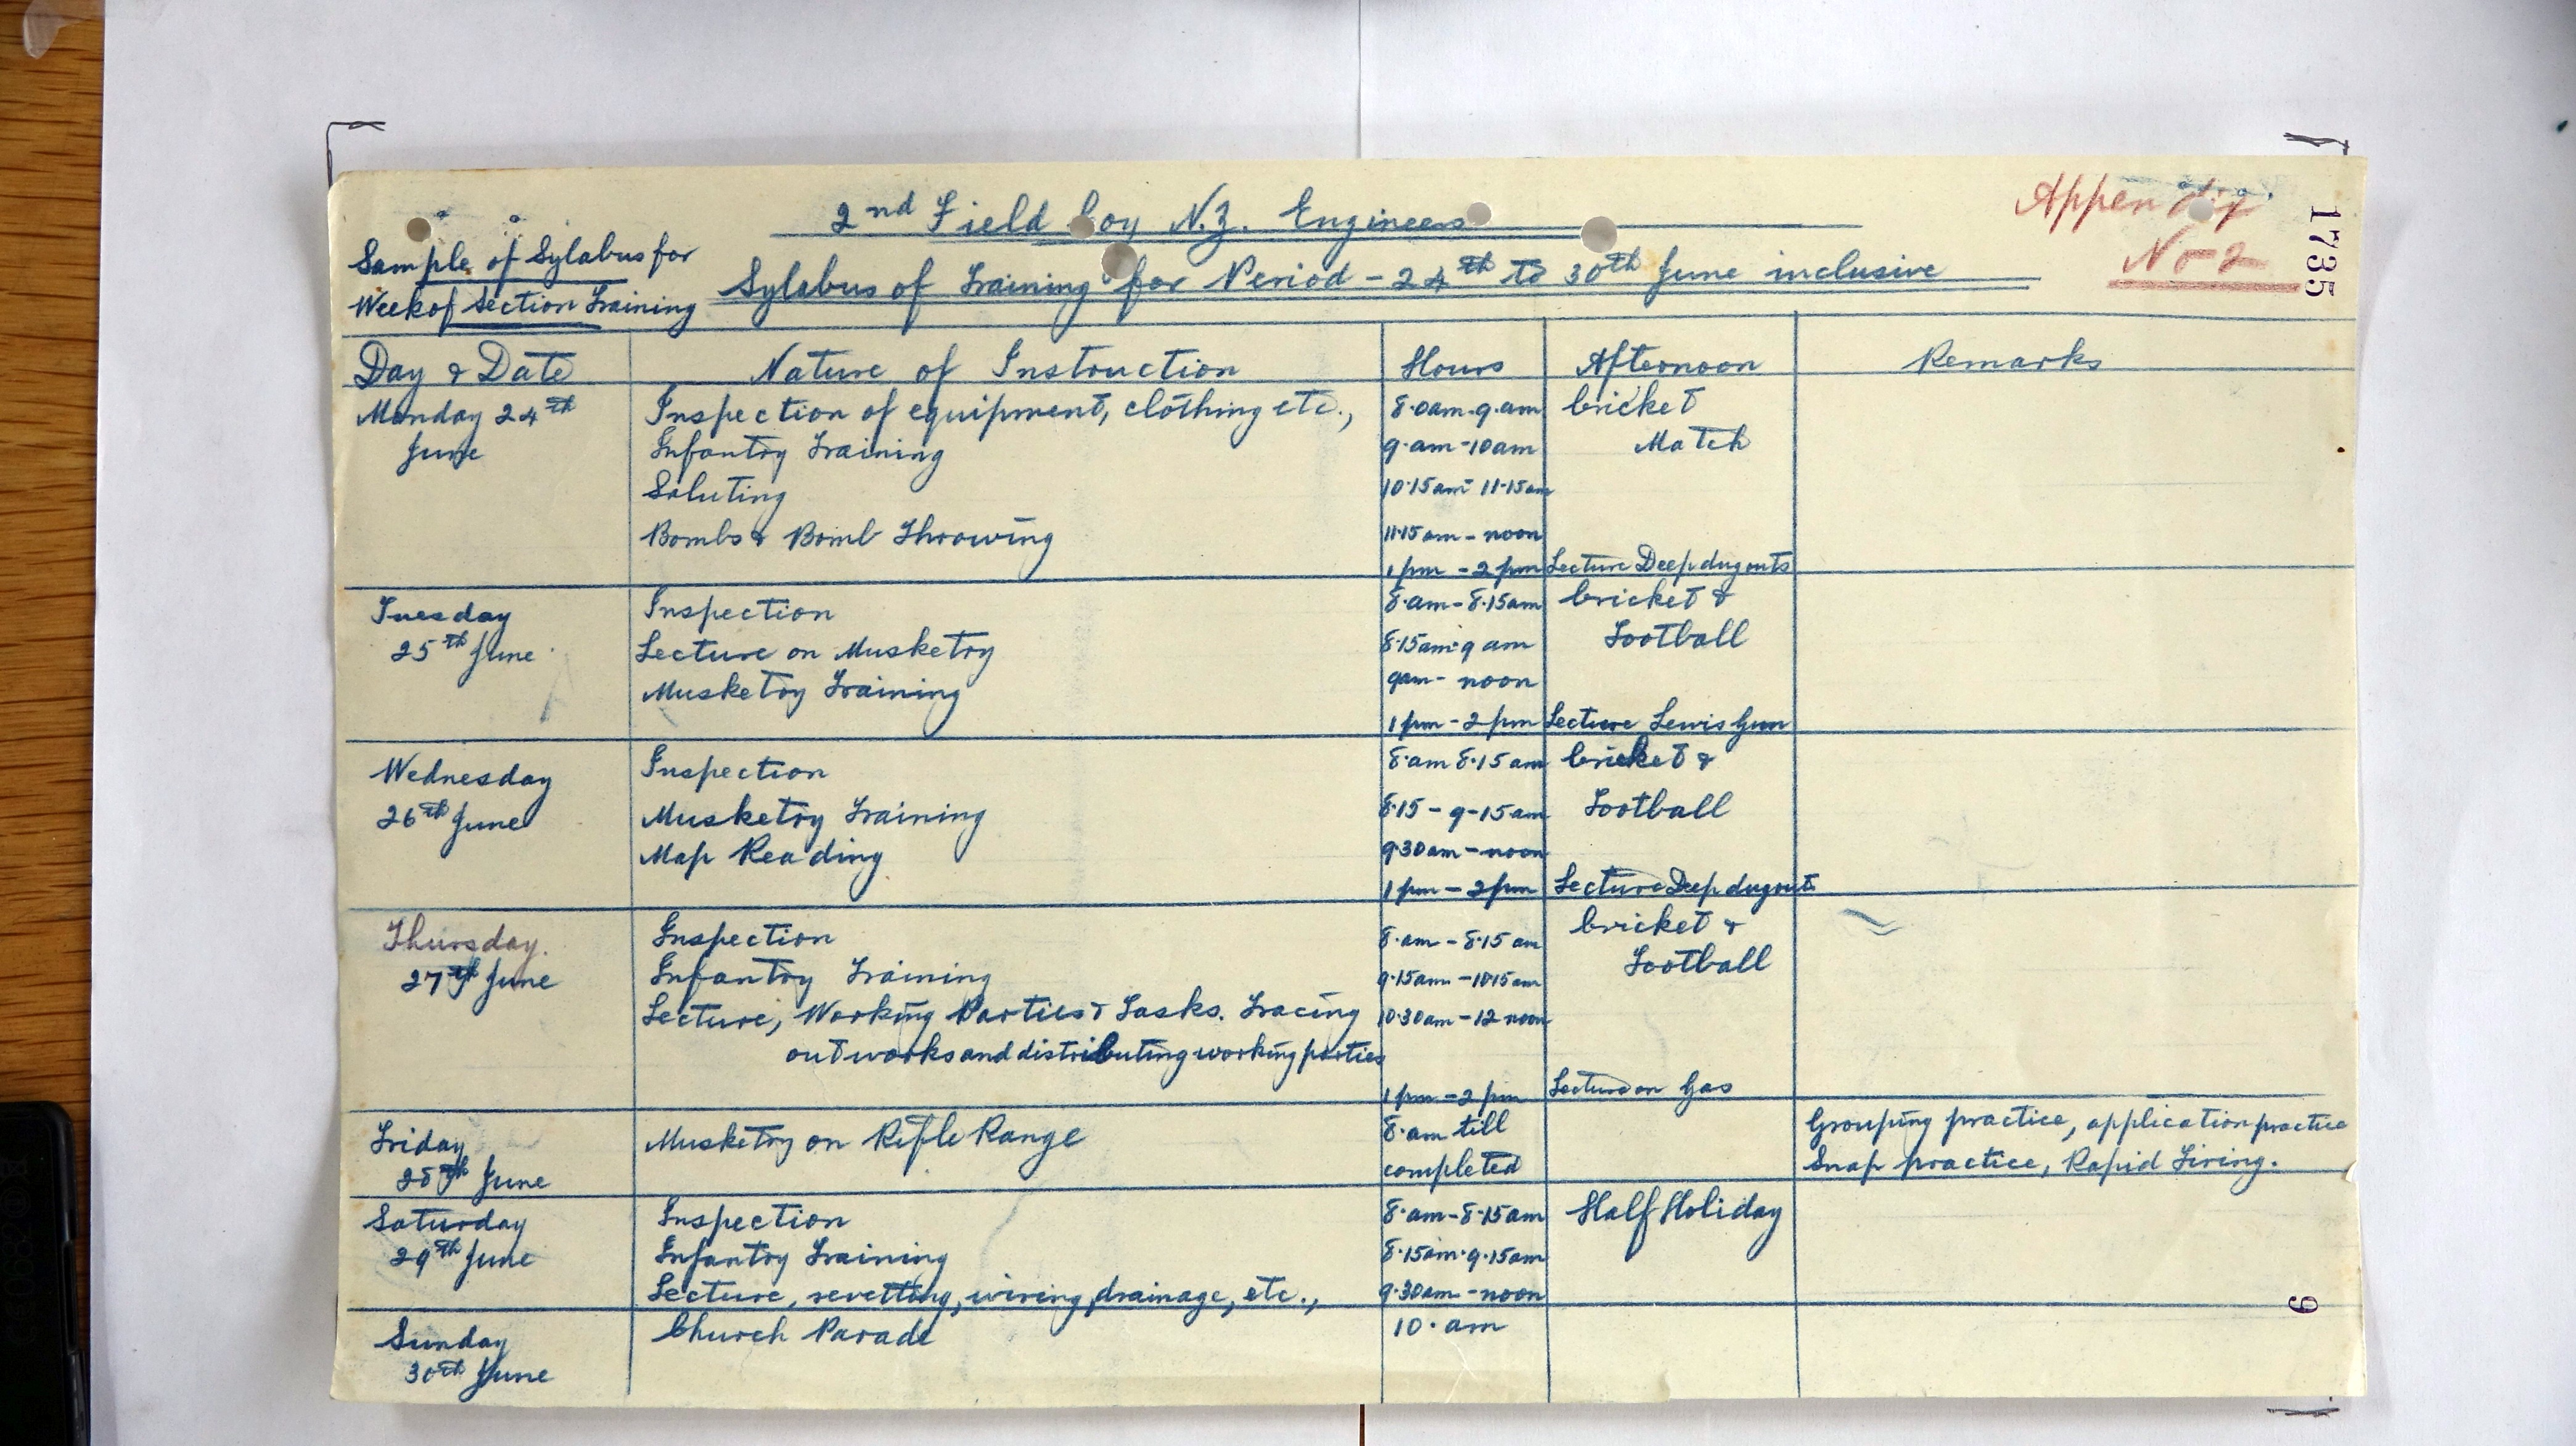 2nd Field Coy N.Z. Engineers
Appendix
No 2
1735
Sample of Sylabus for
Week of Section Training
Sylabus of Training for Period - 24th to 30th June inclusive
Day & Date Nature of Instruction Hours Afternoon Remarks
Monday 24th Inspection of equipment, clothing etc., 8.0am-9.am Cricket
June Infantry Training 9.am-10am Match
Saluting 10.15am-11.15am
Bombs & Bomb Throwing 11.15am-noon
1pm-2pm Lecture Deep dugouts
Tuesday Inspection 8.am-8.15am Cricket &
25th June Lecture on Musketry 8.15am-9am Football
Musketry Training 9am-noon
1pm-2pm Lecture Lewis Gun
Wednesday Inspection 8.am 8.15am Cricket &
26th June Musketry Training 8.15-9-15am Football
Map Reading 9.30am-noon
1pm-2pm Lecture Deep dugouts
Thursday. Inspection 8.am-8.15am Cricket &
27th June Infantry Training 9.15am-10.15am Football
Lecture, Working Parties & Tasks. Tracing 10.30am-12 noon
out works and distributing working parties
1pm-2pm Lecture on Gas
Friday Musketry on Rifle Range 8.am till Grouping practice, application practice
28th June completed Snap practice, Rapid Firing.
Saturday Inspection 8.am-8.15am Half Holiday
29th June Infantry Training 8.15am-9.15am
Lecture, revetting, wiring, drainage, etc., 9.30am-noon
Sunday Church Parade 10.am
30th June
9